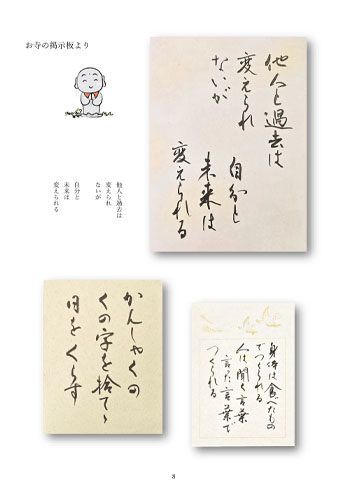 お寺の掲示板より
他人と過去は
変えられ
ないが
自分と
未来は
変えられる
他人と過去は
変えられ
ないが
自分と
未来は
変えられる
かんしゃくの
くの字を捨てゝ
日をくらす
身体は食べたもの
でつくられる
人は聞く言葉
言った言葉で
つくられる
8